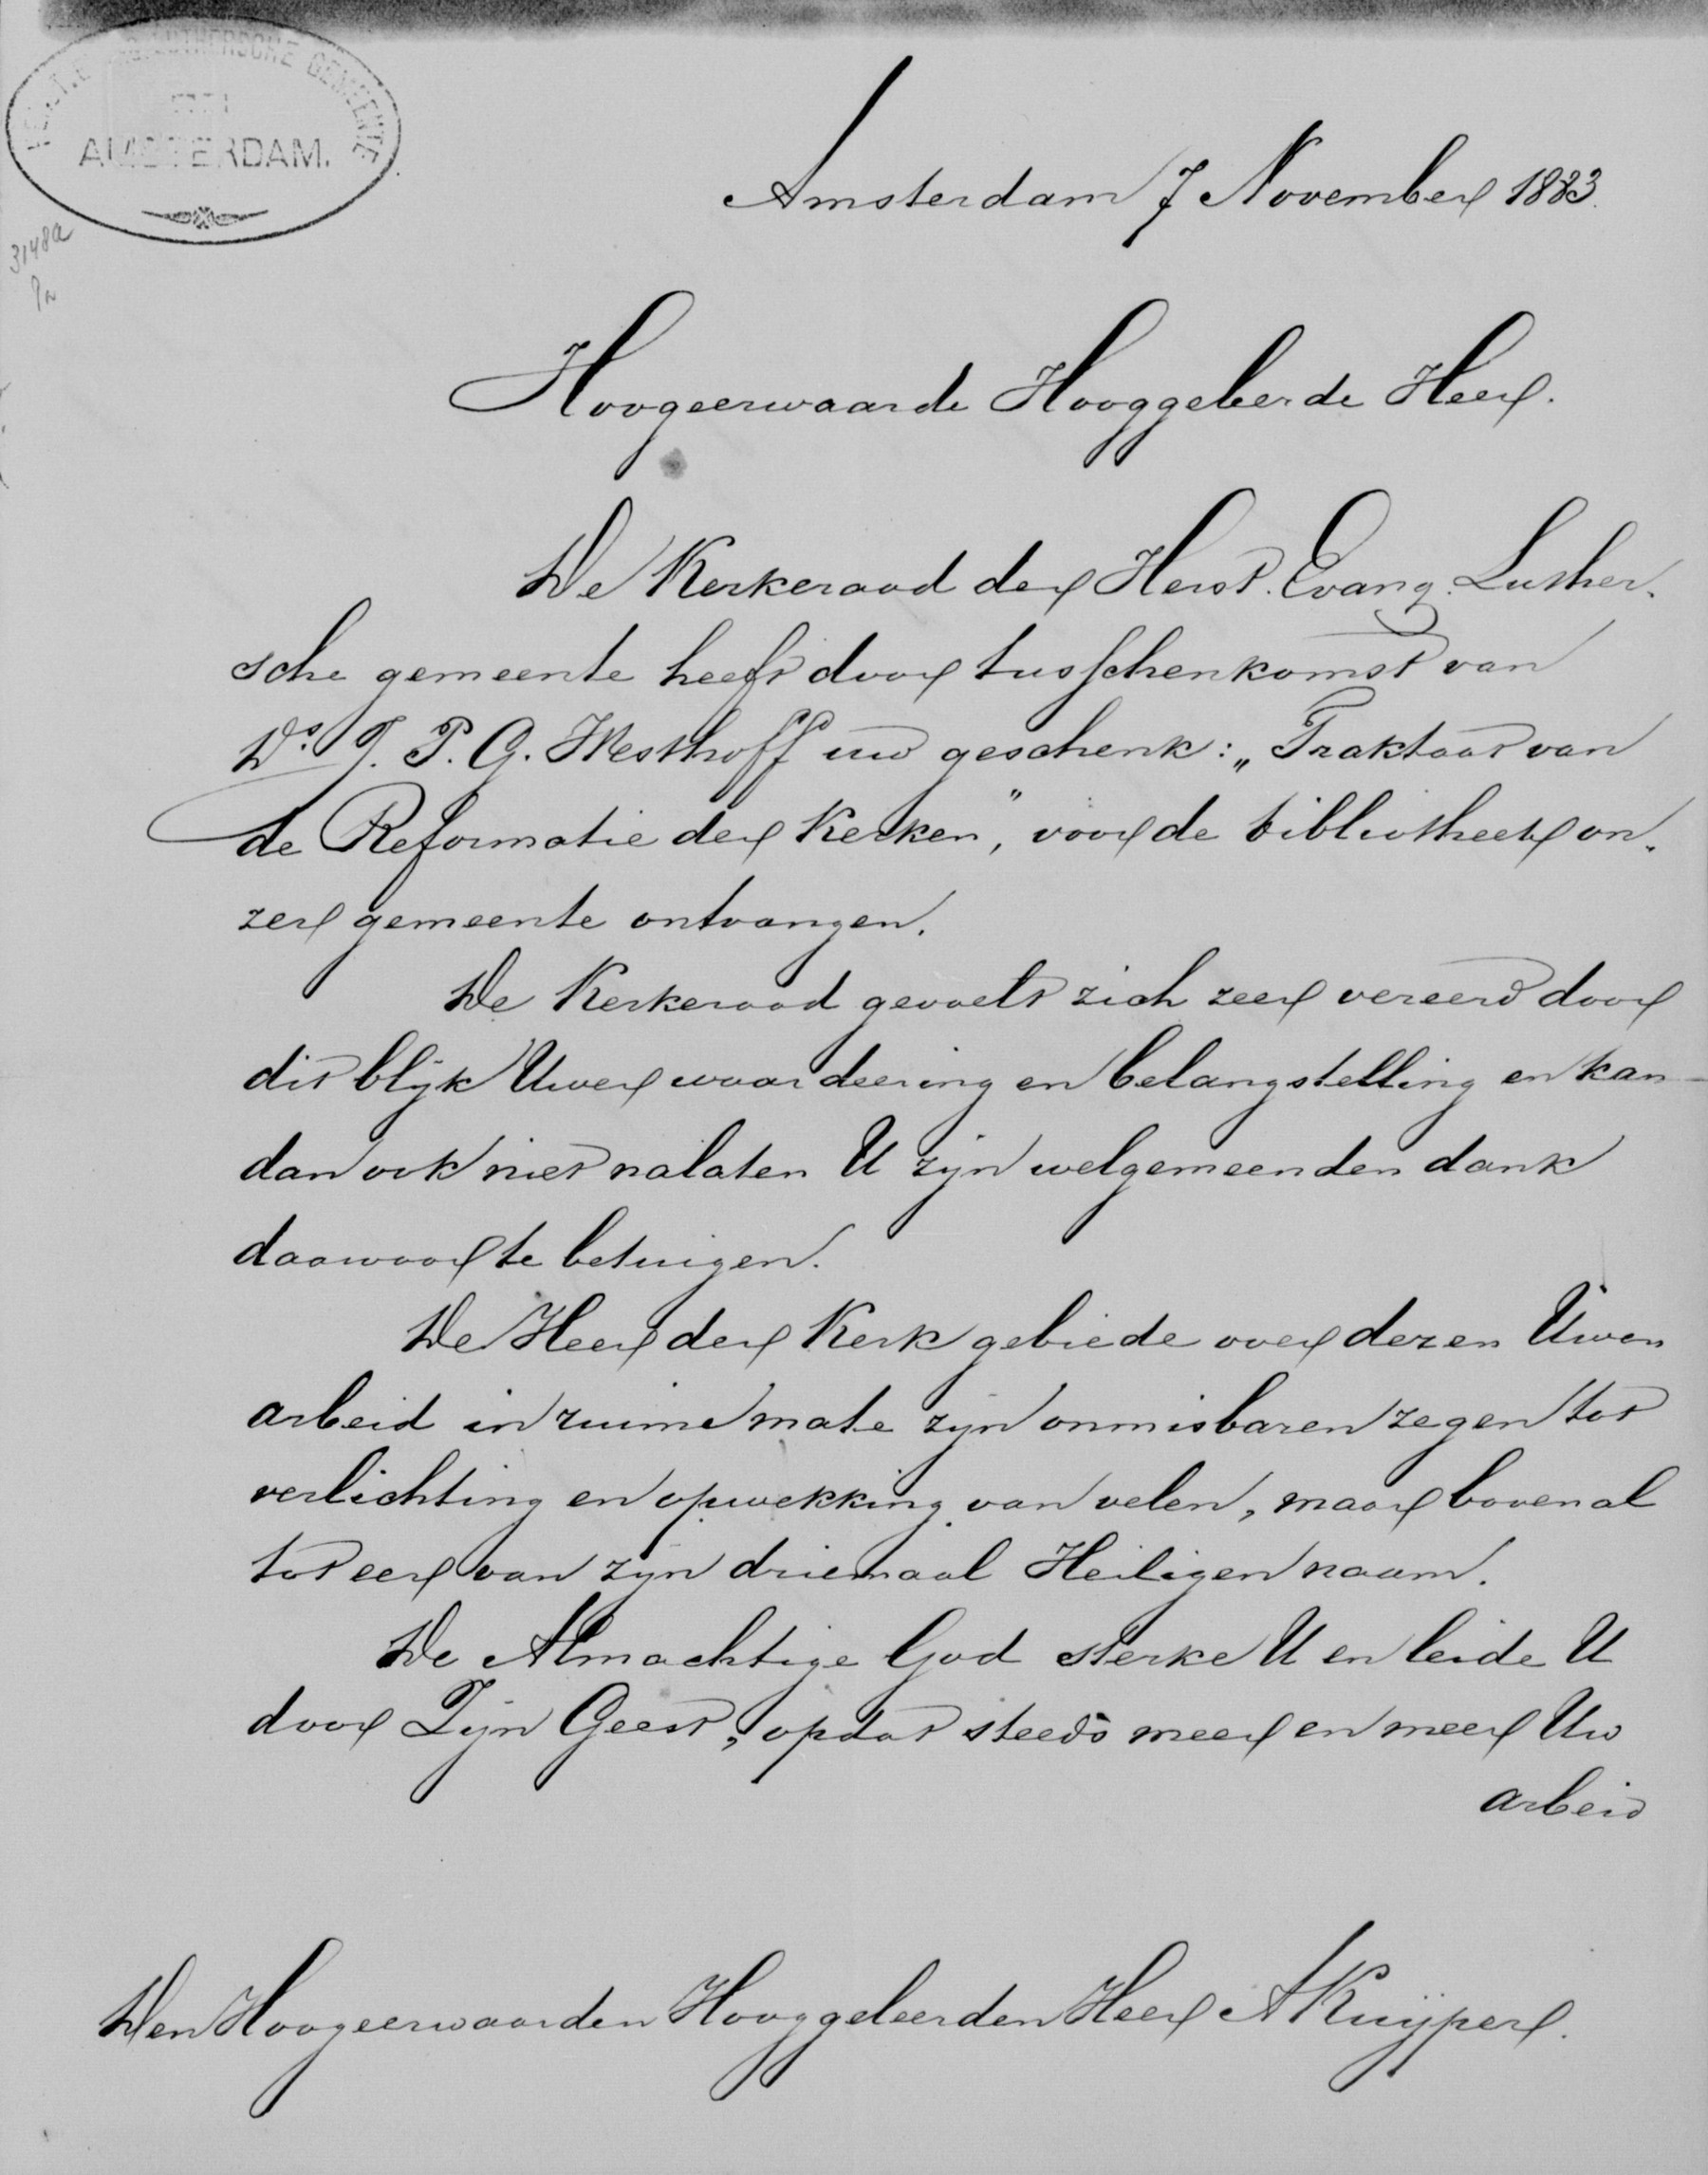 LUTHERSCHE GEMEENTE
AMSTERDAM.
3148a
Amsterdam 7 November 1883.
Hoogeerwaarde Hooggeleerde Heer.
De Kerkeraad der Herst. Evang. Luther-
sche gemeente heeft door tusschenkomst van
Ds. J. P. G. Westhoff uw geschenk: „Traktaat van
de Reformatie der Kerken", voor de bibliotheek on-
zer gemeente ontvangen.
De Kerkeraad gevoelt zich zeer vereerd door
dit blijk Uwer waardeering en belangstelling en kan
dan ook niet nalaten U zijn welgemeenden dank
daarvoor te betuigen.
De Heer der Kerk gebiede over dezen Uwen
arbeid in ruime mate zijn onmisbaren zegen tot
verlichting en opwekking van velen, maar bovenal
tot eer van zijn driemaal Heiligen naam.
De Almachtige God sterke U en leide U
door Zijn Geest, opdat steeds meer en meer Uw
arbeid
Den Hoogeerwaarden Hooggeleerden Heer A Kuijper.